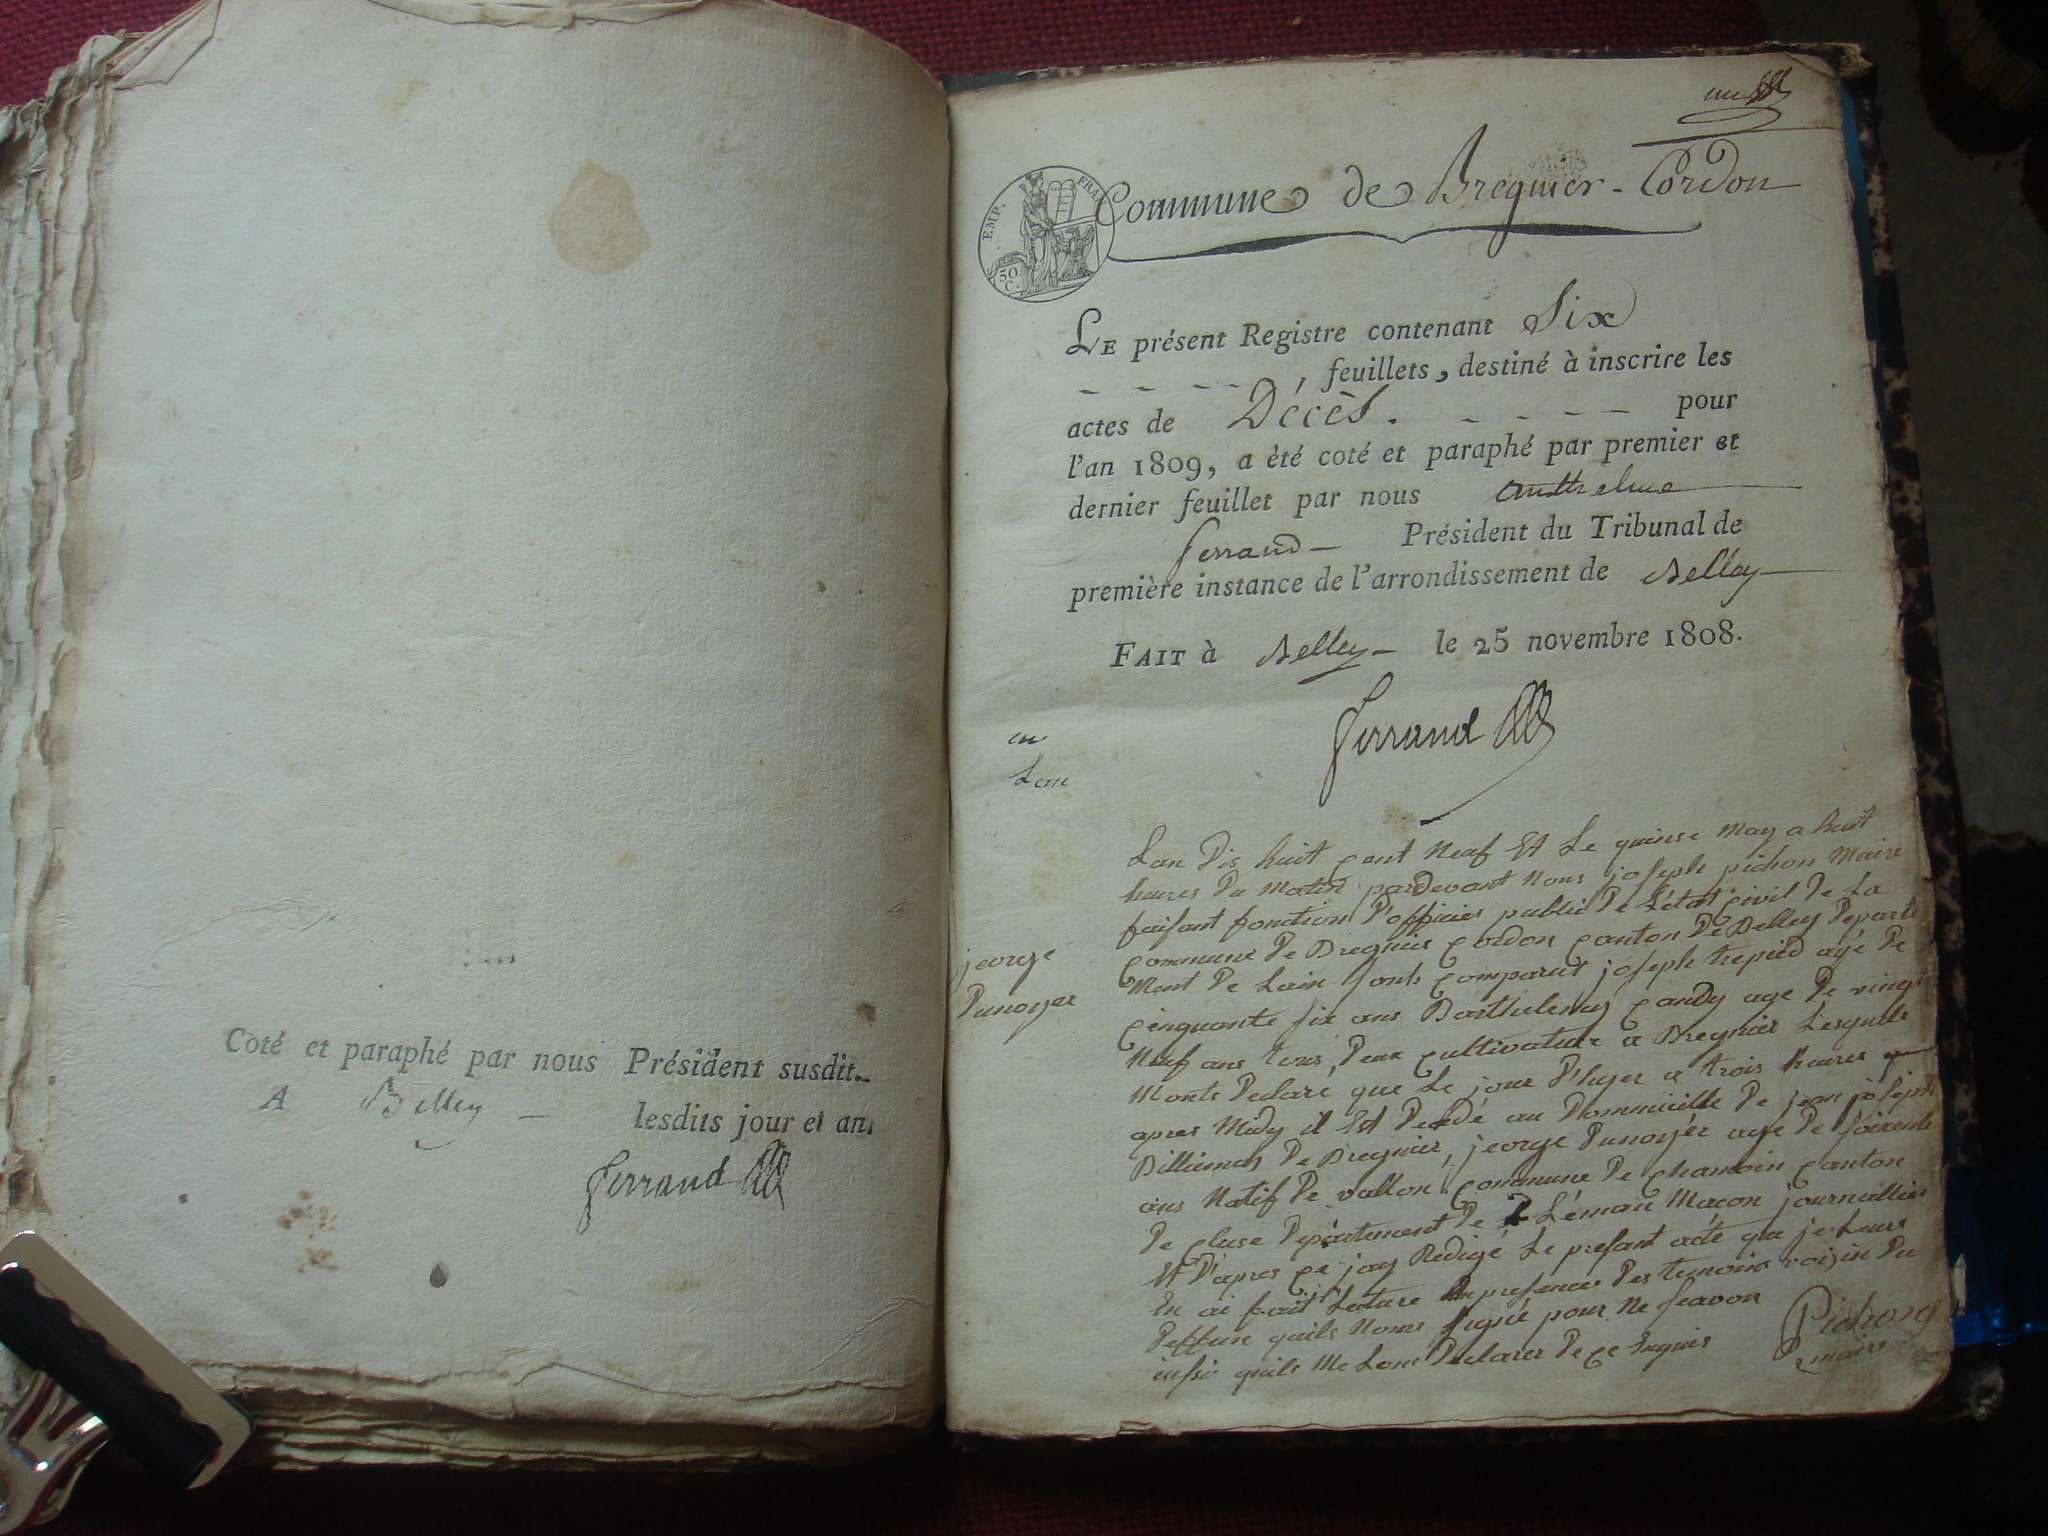 Coté et paraphé par nous Président susdit.
A Belley lesdits jour et an.
Ferrand
un
EMP. FRAN
50 C.
Commune de Bregnier-Cordon
LE présent Registre contenant Six
feuillets, destiné à inscrire les
actes de Décès. pour
l'an 1809, a èté coté et paraphé par premier et
dernier feuillet par nous Anthelme
ferrand Président du Tribunal de
première instance de l'arrondissement de Belley
FAIT à Belley le 25 novembre 1808.
Ferrand
Lan
jeorge
Dunoyer
Lan Dis huit cent Neuf Et Le quinse May a huit
heures Du Matin pardevant Nous joseph pichon Maire
faisant fonction D'officier public De L'état civil De La
Commune De Bregnier Cordon Canton De Belley Departe
Ment De Lain sonts comparut joseph trepied agé De
cinquante six ans Barthelemy candy age De vingt
Neuf ans tous Deux cultivature a Bregnier Lesquels
Monts Declaré que Le jour D'hyer a trois heures
apres Midy il Est Decedé au Dommicille De jean joseph
Billiemas De Bregnier, jeorge Dunoyer age De soixente
ans Natif De vallon commune De Chamoin Canton
De Cluse Departement De Léman Macon journallier
Et D'apres ce jay Redigé Le present acte que je Leurs
En ai fait Lecture En presence Des temoins voizin Du
Deffun quils Nons signé pour Ne scavoir
insi quils Me Lont Declarer De ce Enquis
Pichon
maire